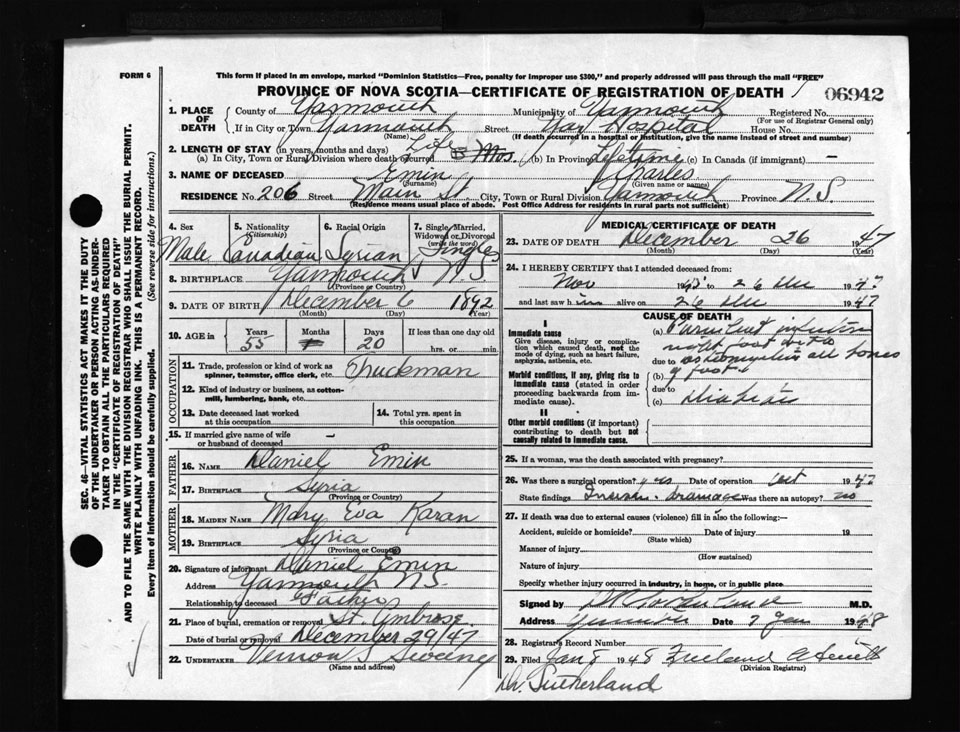 FORM 6
This form if placed in an envelope, marked "Dominion Statistics—Free, penalty for improper use $300," and properly addressed will pass through the mail "FREE"
PROVINCE OF NOVA SCOTIA—CERTIFICATE OF REGISTRATION OF DEATH
06942
1. PLACE OF DEATH
County of Yarmouth Municipality of Yarmouth Registered No.
(For use of Registrar General only)
If in City or Town Yarmouth Street Yar Hospital House No.
(Name) (If death occurred in a hospital or institution, give the name instead of street and number)
2. LENGTH OF STAY (in years, months and days)
(a) In City, Town or Rural Division where death occurred Life Mos. (b) In Province Lifetime (c) In Canada (if immigrant) —
3. NAME OF DECEASED Emin Charles
(Surname) (Given name or names)
RESIDENCE No. 206 Street Main St. City, Town or Rural Division Yarmouth Province N.S.
(Residence means usual place of abode. Post Office Address for residents in rural parts not sufficient)
4. Sex 5. Nationality (Citizenship) 6. Racial Origin 7. Single, Married, Widowed or Divorced (write the word)
Male Canadian Syrian Single
8. BIRTHPLACE Yarmouth N S
(Province or Country)
9. DATE OF BIRTH December 6 1892
(Month) (Day) (Year)
10. AGE in Years Months Days If less than one day old
55 20 hrs. or min.
OCCUPATION
11. Trade, profession or kind of work as spinner, teamster, office clerk, etc. Truckman
12. Kind of industry or business, as cotton-mill, lumbering, bank, etc.
13. Date deceased last worked at this occupation
14. Total yrs. spent in this occupation
15. If married give name of wife or husband of deceased —
FATHER
16. NAME Daniel Emin
17. BIRTHPLACE Syria
(Province or Country)
MOTHER
18. MAIDEN NAME Mary Eva Karan
19. BIRTHPLACE Syria
(Province or Country)
20. Signature of informant Daniel Emin
Address Yarmouth N.S.
Relationship to deceased Father
21. Place of burial, cremation or removal St. Ambrose
Date of burial or removal December 29/47
22. UNDERTAKER Vernon S Sweeny
(Name and address)
MEDICAL CERTIFICATE OF DEATH
23. DATE OF DEATH December 26 1947
(Month) (Day) (Year)
24. I HEREBY CERTIFY that I attended deceased from:
Nov 194 to 26 Dec 1947
and last saw him alive on 26 Dec 1947
CAUSE OF DEATH
I
Immediate cause
Give disease, injury or complication which caused death, not the mode of dying, such as heart failure, asphyxia, asthenia, etc.
Morbid conditions, if any, giving rise to immediate cause (stated in order proceeding backwards from immediate cause).
II
Other morbid conditions (if important) contributing to death but not causally related to immediate cause.
(a) Purulent infection
right foot with
due to osteomyelitis all bones
(b) of foot
due to
(c) Diabetes
25. If a woman, was the death associated with pregnancy?
26. Was there a surgical operation? yes Date of operation Oct 1947
State findings Incision. drainage Was there an autopsy? no
27. If death was due to external causes (violence) fill in also the following:—
Accident, suicide or homicide? Date of injury 19
(State which)
Manner of injury
(How sustained)
Nature of injury
Specify whether injury occurred in industry, in home, or in public place
Signed by M.D.
Address Date 7 Jan 1948
28. Registrar's Record Number
29. Filed Jan 8 1948
(Division Registrar)
Dr. Sutherland
SEC. 46—VITAL STATISTICS ACT MAKES IT THE DUTY
OF THE UNDERTAKER OR PERSON ACTING AS-UNDER-
TAKER TO OBTAIN ALL THE PARTICULARS REQUIRED
IN THE "CERTIFICATE OF REGISTRATION OF DEATH"
AND TO FILE THE SAME WITH THE DIVISION REGISTRAR WHO SHALL ISSUE THE BURIAL PERMIT.
WRITE PLAINLY WITH UNFADING INK. THIS IS A PERMANENT RECORD.
Every item of information should be carefully supplied. (See reverse side for instructions.)